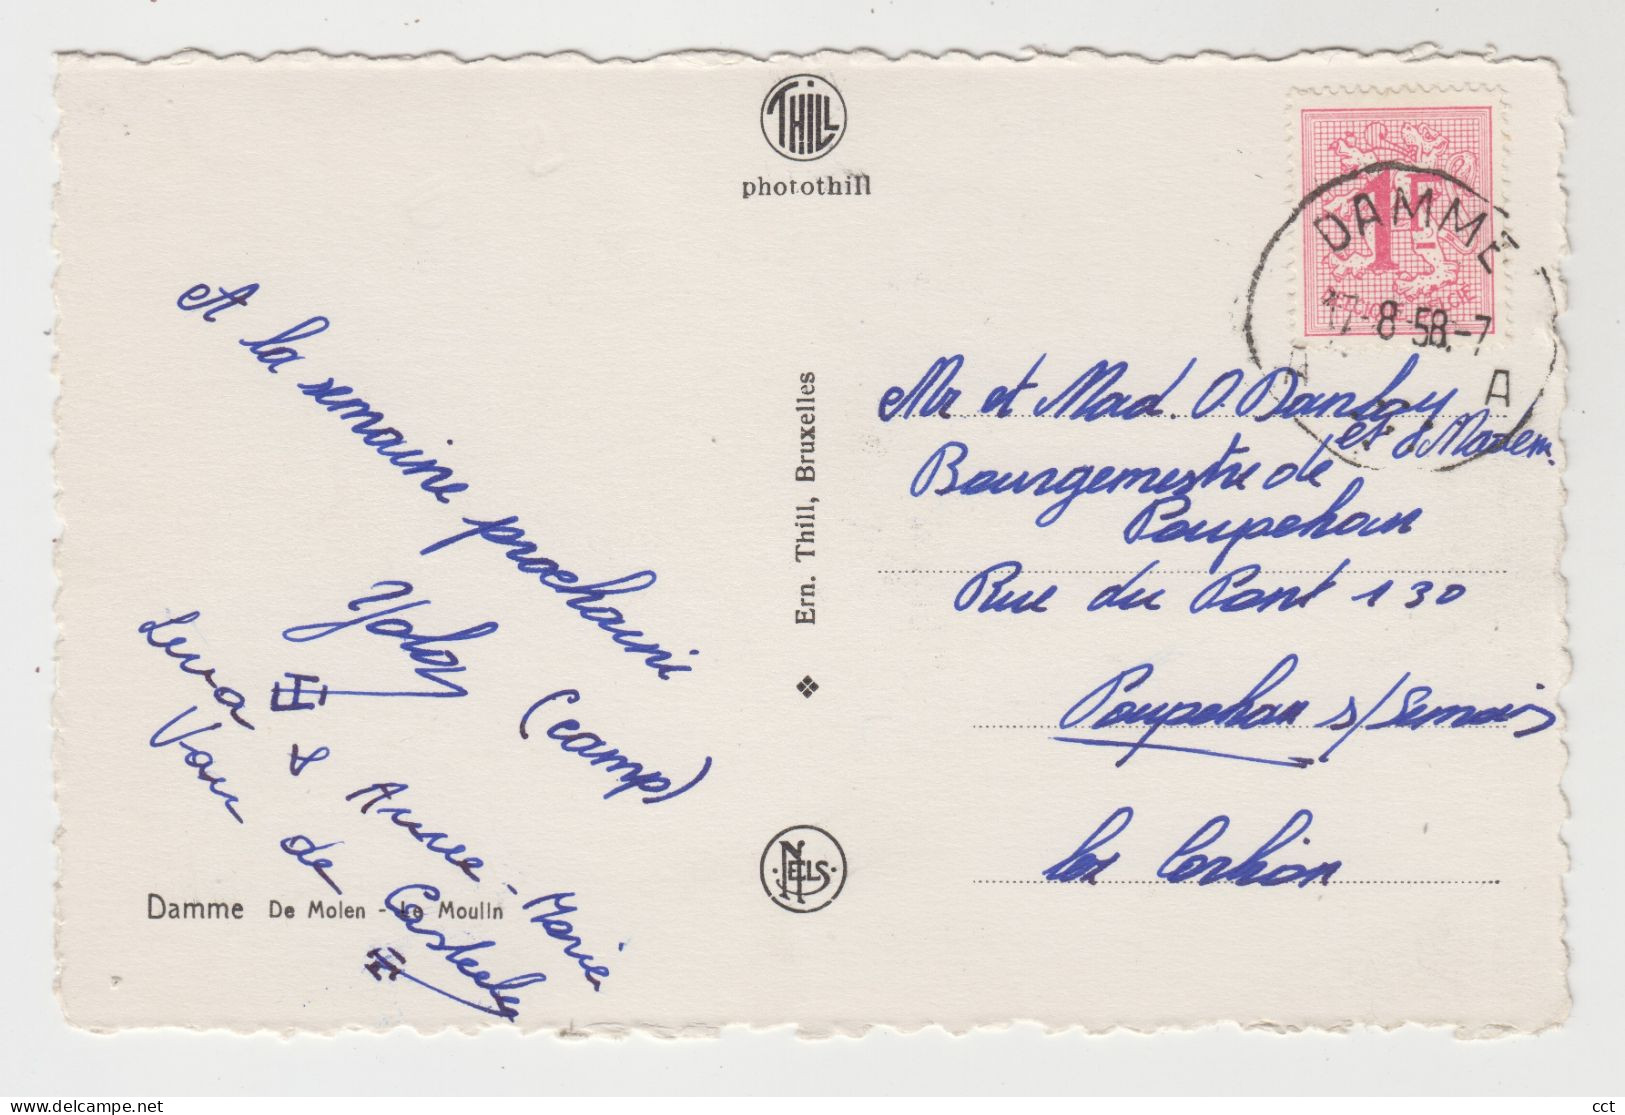 THILL
photothill
1F
BELGIQUE-BELGIE
DAMME
17-8-58.-7
A A
A la semaine prochaine
(camp)
Yola
& Anne-Marie
Van de Casteele
Damme De Molen - Le Moulin
Ern. Thill, Bruxelles
NELS
Mr et Mad. O Danloy
et Madem.
Bourgemestre de
Poupehan
Rue du Pont 130
Poupehan s/Semois